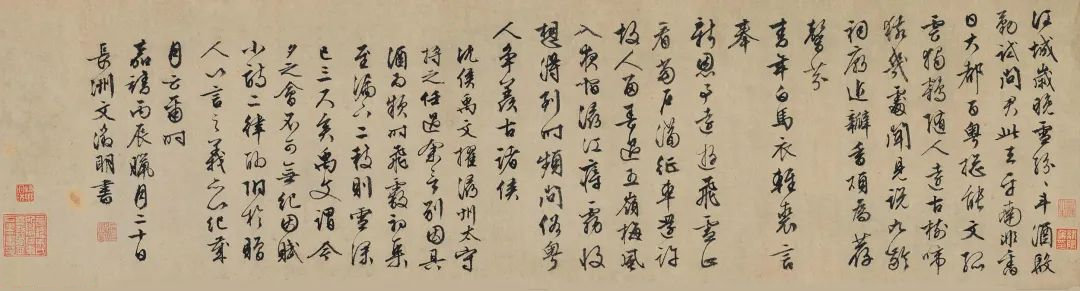 江城歲晚雪紛〻斗酒殷
勤試問君此去
日大都百粵總能文孤
雲獨鶴隨人遠古樹啼
猿幾處聞見說九齡
祠廟近瓣香煩為薦
馨芬
青年白馬衣輕裘言
奉
新恩守遠州飛雪正
看當戶滿征車寧許
故人留春過五嶺梅風
入 潯江瘴霧收
想得到時頻問俗粵
人爭羨古諸侯
沈侯禹文擢潯州太守
將之任過余言別因具
酒為 時飛霰初集
至漏 二 則雪深
已三尺矣禹文謂今
夕之會不可無紀因賦
小詩二律聊附於贈
人以言之義亦以紀歲
月云爾時
嘉靖丙辰臘月二十日
長洲文徵明書